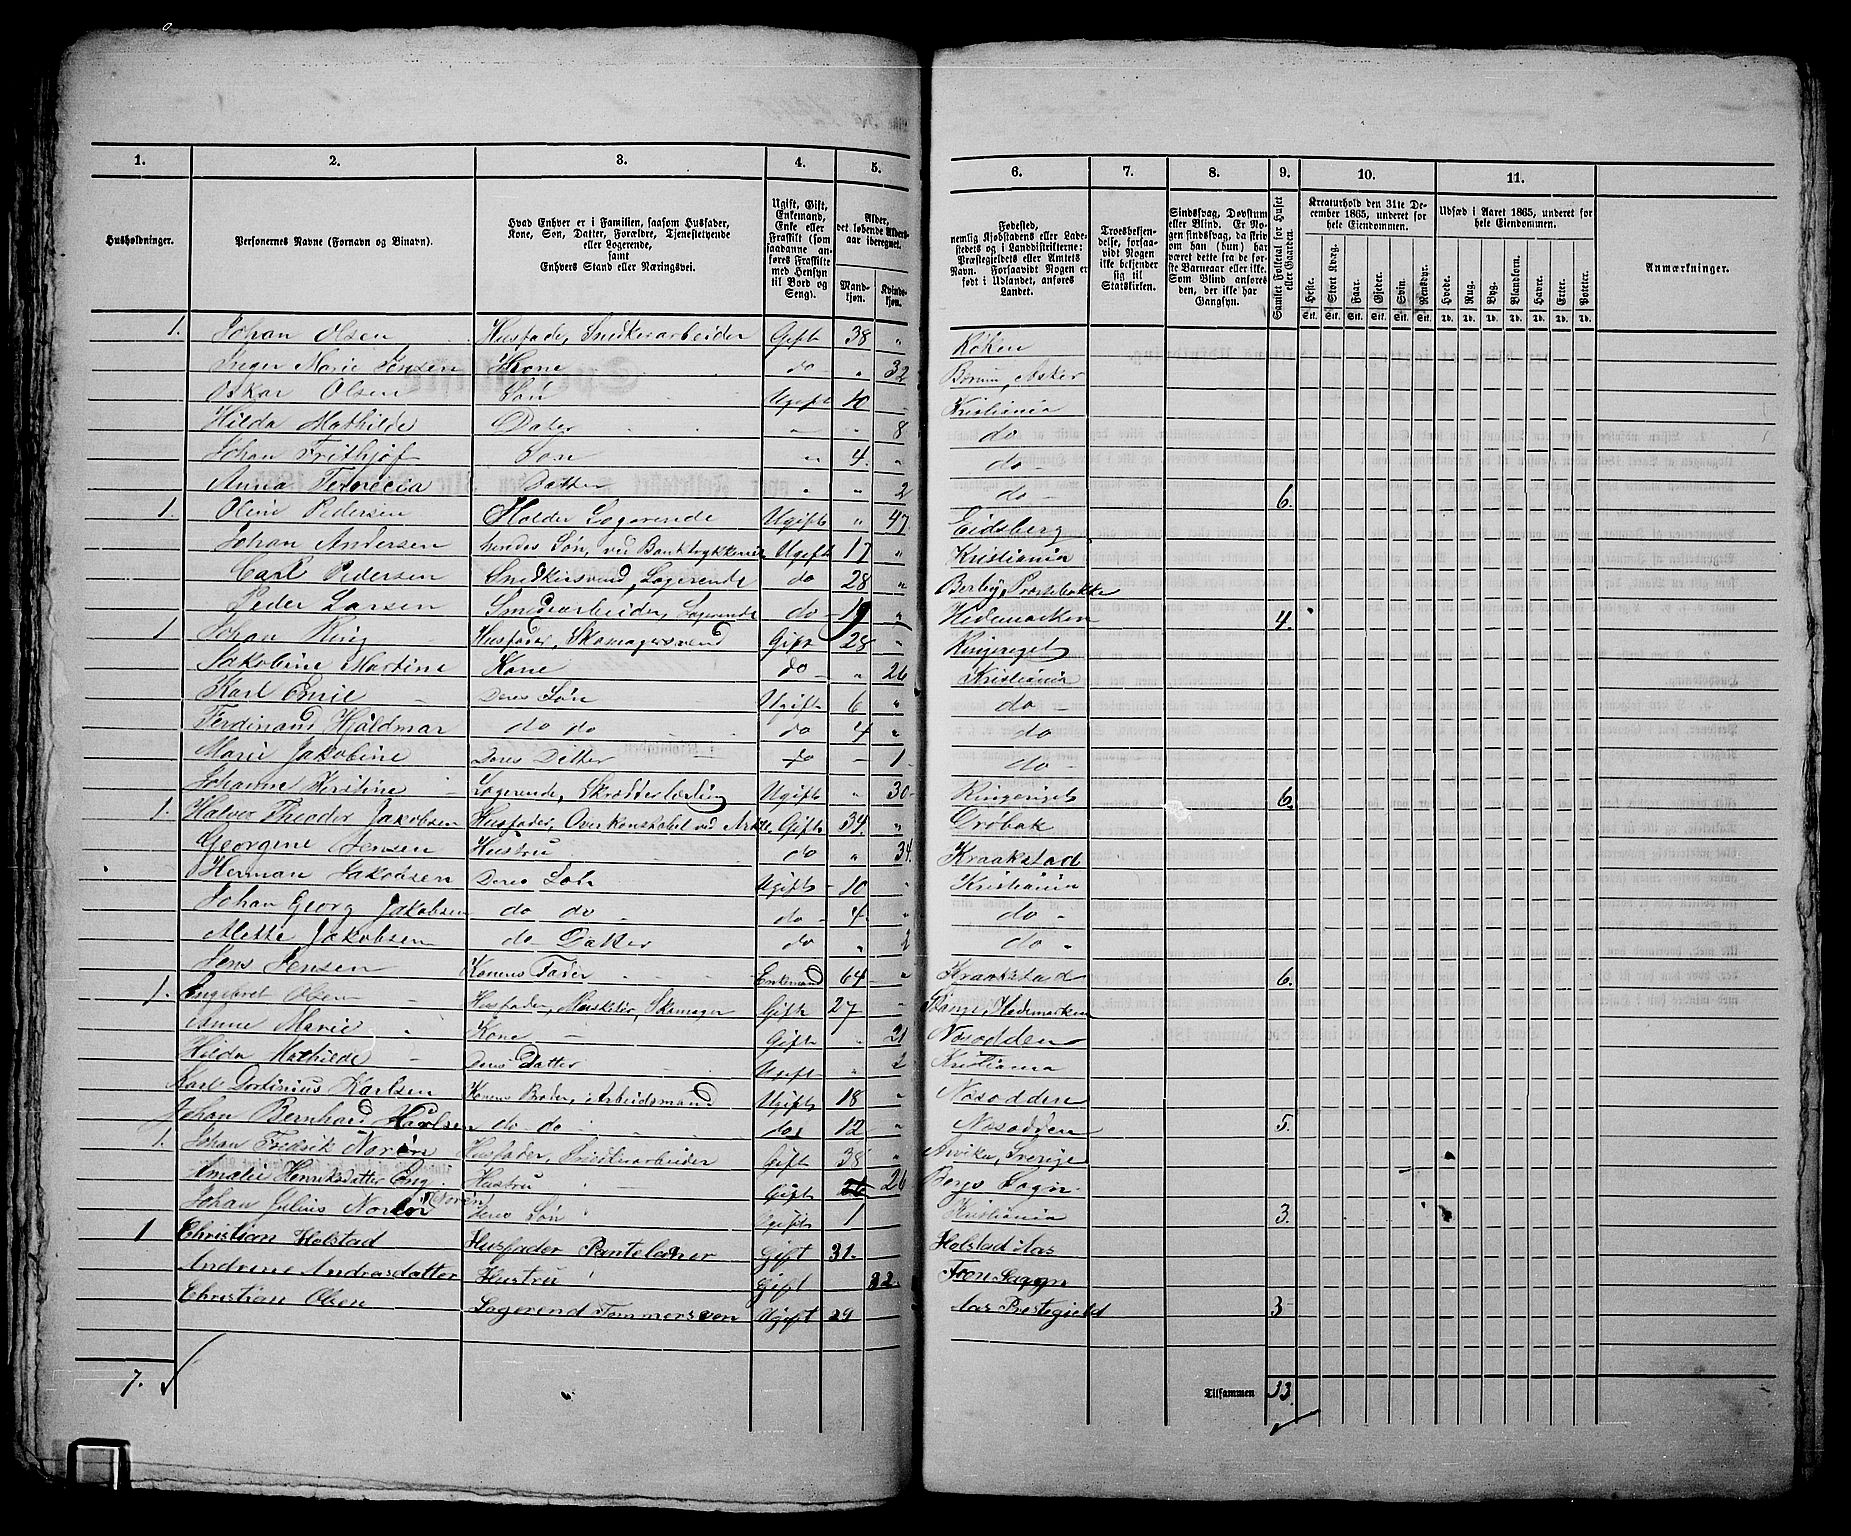 1. 2. 3. 4. 5. 6. 7. 8. 9. 10. 11.
Husholdninger.
Personernes Navne (Fornavn og Binavn).
Hvad Enhver er i Familien, saasom Husfader,
Kone, Søn, Datter, Forældre, Tjenestetyende
eller Logerende,
samt
Enhvers Stand eller Næringsvei.
Ugift, Gift,
Enkemand,
Enke eller
Fraskilt (som
saadanne an-
føres Fraskilte
med Hensyn
til Bord og
Seng).
Alder,
det løbende Alders-
aar iberegnet.
Mand-
kjøn.
Kvinde-
kjøn.
Fødested,
nemlig Kjøbstadens eller Lade-
stedets og i Landdistrikterne:
Præstegjeldets eller Amtets
Navn. Forsaavidt Nogen er
født i Udlandet, anføres
Landet.
Troesbekjen-
delse, forsaa-
vidt Nogen
ikke bekjender
sig til
Statskirken.
Sindssvag, Døvstum
eller Blind. Er No-
gen sindssvag, da skriv
om han (hun) har
været dette fra de før-
ste Barneaar eller ikke.
Som Blind anføres
den, der ikke har
Gangsyn.
Samlet Folketal for Huset
eller Gaarden.
Kreaturhold den 31te De-
cember 1865, underet for
hele Eiendommen.
Heste. Stort Kvæg. Faar. Gjeder. Svin. Rensdyr.
Stk. Stk. Stk. Stk. Stk. Stk.
Udsæd i Aaret 1865, underet for
hele Eiendommen.
Hvede. Rug. Byg. Blandkorn. Havre. Erter. Poteter.
Td. Td. Td. Td. Td. Td. Td.
Anmærkninger.
1. Johan Olsen Husfader, Snedkerarbeider Gift 38 " Røken
Inger Marie Jensen Kone do " 32 Berum, Asker
Oskar Olsen Søn Ugift 10 Kristiania
Hilda Mathilde Dater " 8 do
Johan Frithjof Søn " 4. " do
Anna Datter " " 2 do 6.
1. Oline Pedersen Holder Logerende Ugift " 47. Eidsberg
Johan Andersen hendes Søn, ved Ugift 17 " Kristiania
Carl Pedersen Snedkersvend, Logerende do 28 " Berby, Præstebakke
Peder Larsen Smedarbeider, Logerende do 19 " Hedemarken 4.
1 Johan Husfader, Skomagersvend Gift 28 " Ringeriget
Jakobine Martine Kone do " 26 Kristiania
Karl Emil Deres Søn Ugift 6 " do
Ferdinand Hjaldmar do do do 4 " do
Marie Jakobine Deres Datter do 1 do
Johanne Kirstine Logerende, Ugift " 30 Ringeriget 6.
1. Halvor Theodor Jakobsen Husfader, Overkonstabel ved Gift 34 " Drøbak
Georgine Jensen Hustru do " 34. Kraakstad
Herman Jakobsen Deres Søn Ugift 10 " Kristiania
Johan Georg Jakobsen do do do 4 " do
Mette Jakobsen do Datter do " 2 do
Jens Jensen Konens Fader Enkemand 64 " Kraakstad 6.
1. Engebret Olsen Husfader, Skomager Gift 27 " Stange, Hedemarken
Anne Marie Kone Gift " 21 Næsodden
Hilda Mathilde Deres Datter Ugift " 2 Kristiania
Karl Karlsen Konens Broder, Arbeidsmand Ugift 18 " Næsodden
Johan Bernhard Karlsen do do do 12 " Næsodden 5.
1. Johan Fredrik Norén Husfader, Gift 38 " Arvika, Sverige
Amalie Henriksdatter Eng Hustru Gift 26 Bergs Sogn
Johan Julius Norén (Norén) Deres Søn Ugift 1 Kristiania 3.
1 Christian Holstad Husfader Gift 31. Holstad Aas
Andrine Andrasdatter Hustru Gift 32
Christian Olsen Logerend Tømmersven Ugift 29 Aas Prestegjeld 3
7.
Tilsammen 33